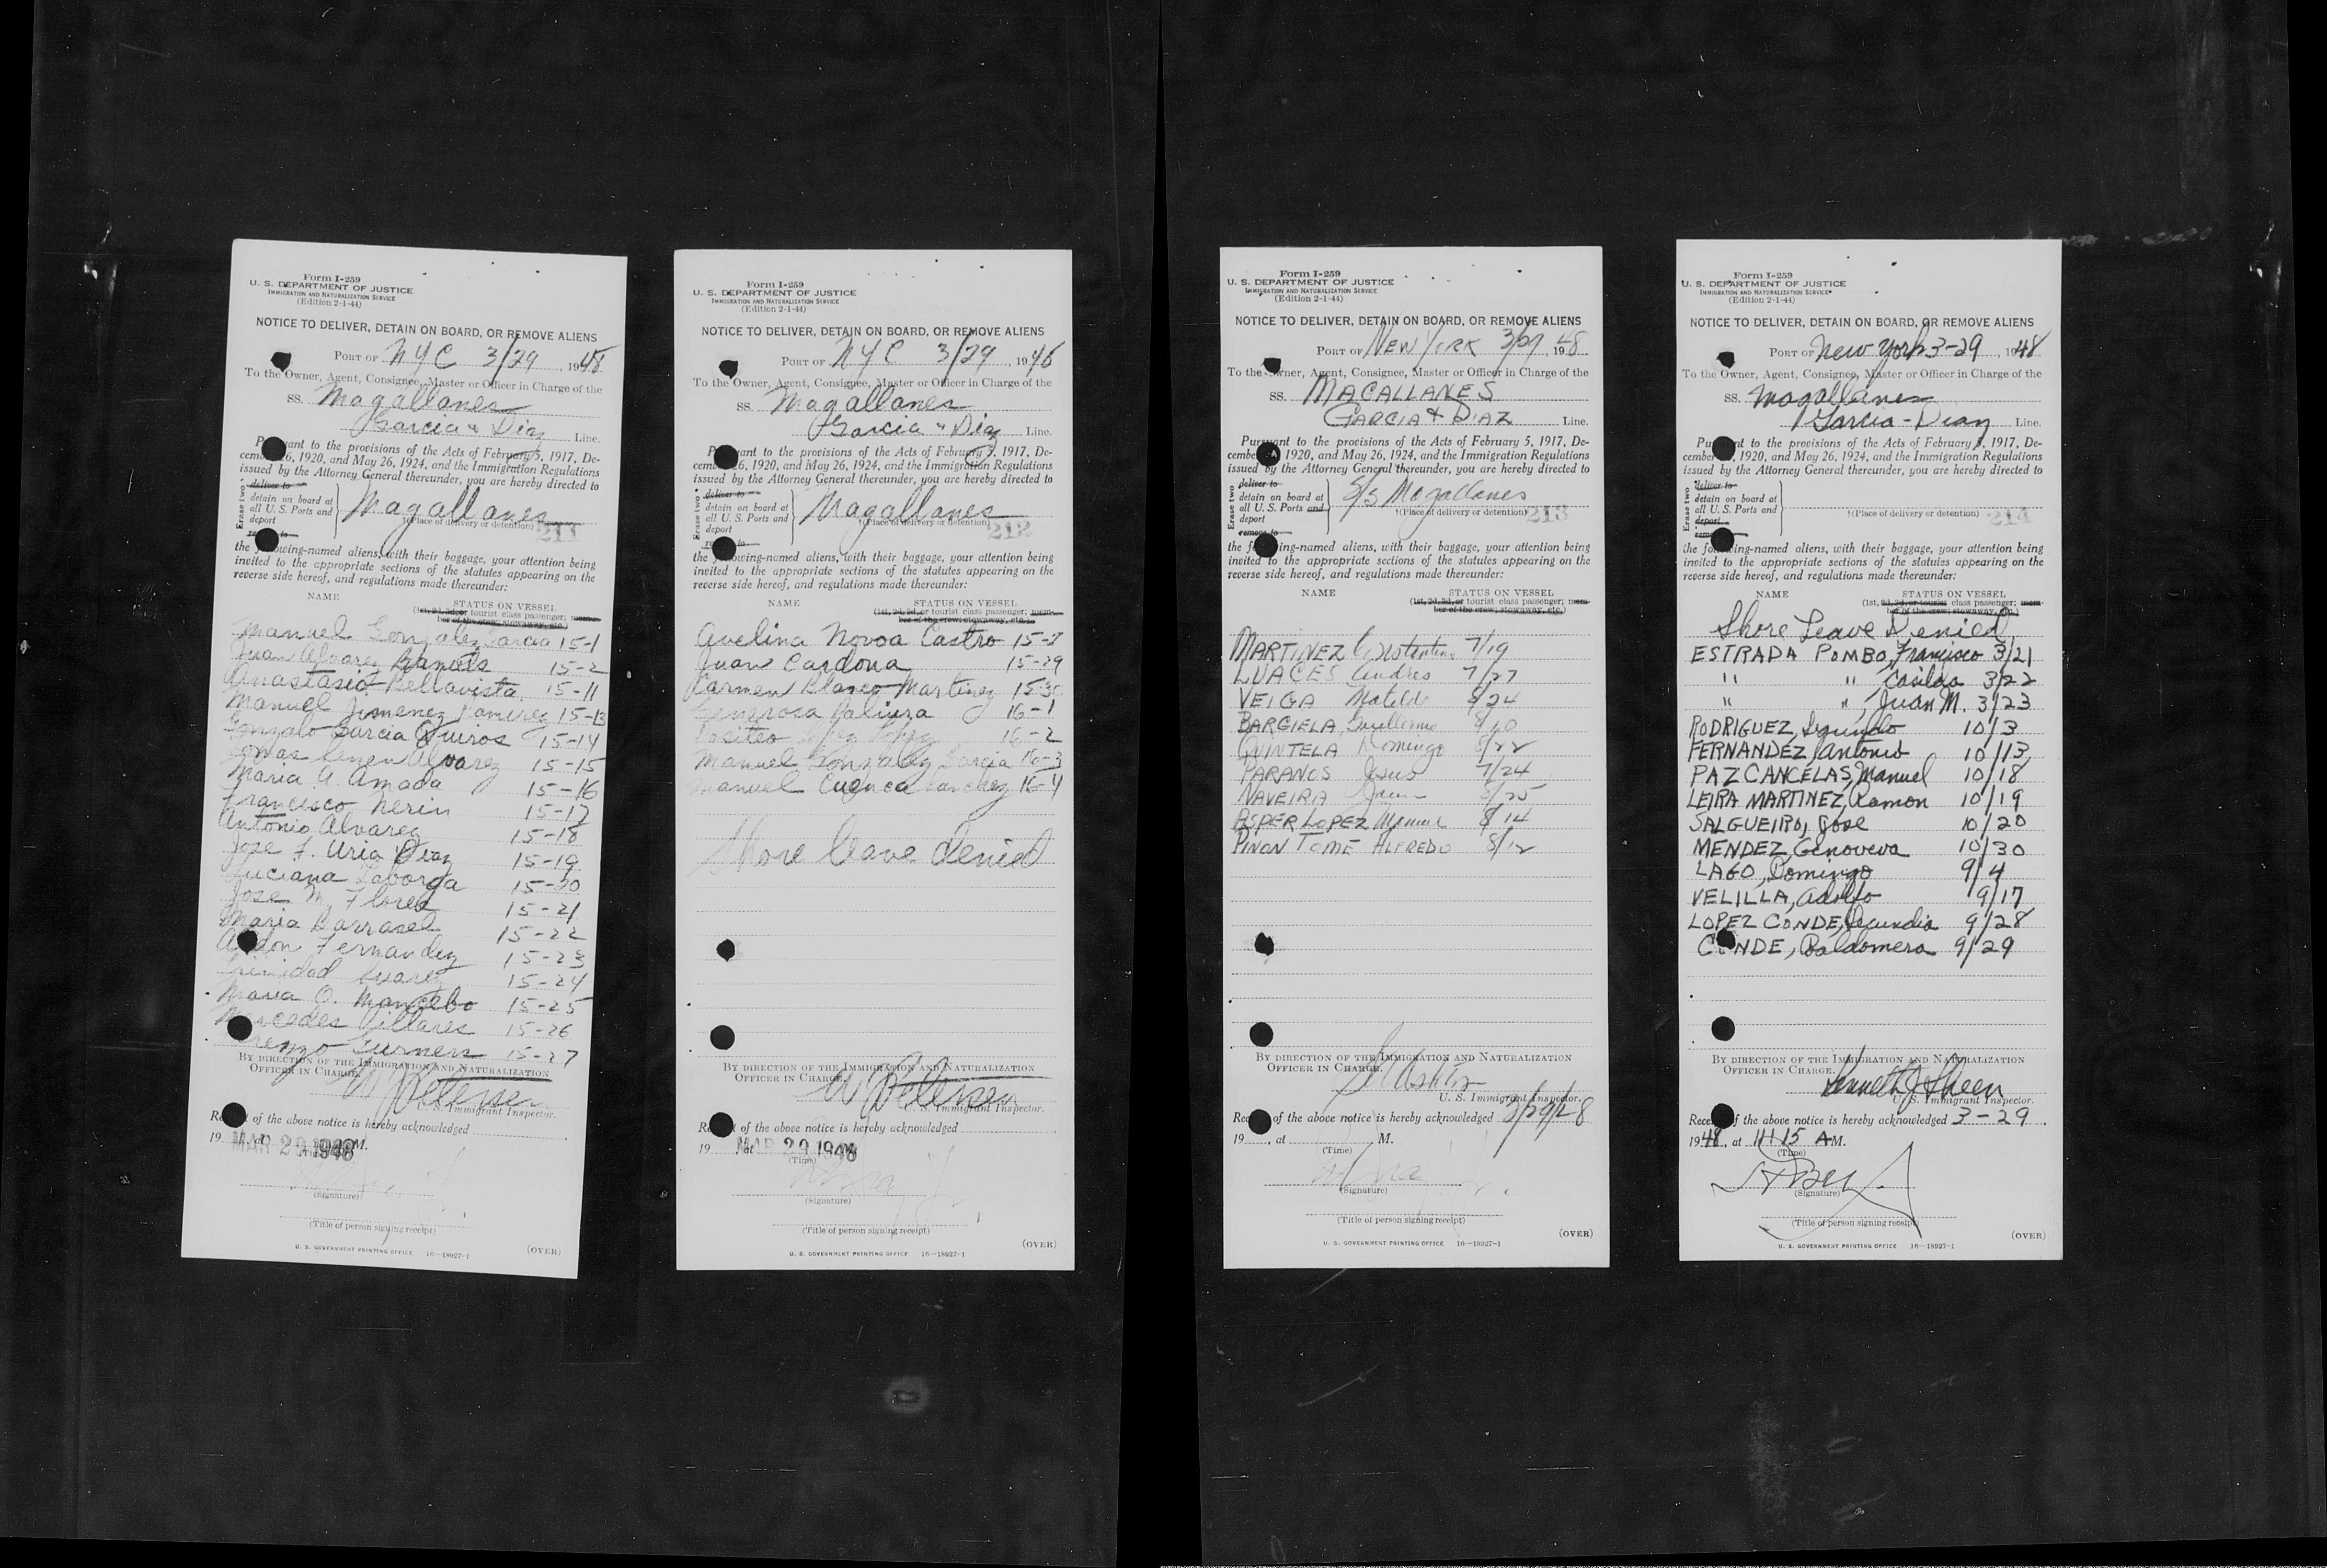 Form I-259
U. S. DEPARTMENT OF JUSTICE
IMMIGRATION AND NATURALIZATION SERVICE
(Edition 2-1-44)
NOTICE TO DELIVER, DETAIN ON BOARD, OR REMOVE ALIENS
PORT OF NYC 3/29, 1948
To the Owner, Agent, Consignee, Master or Officer in Charge of the
SS. Magallanes
Garcia & Diaz Line.
Pursuant to the provisions of the Acts of February 5, 1917, De-
cember 26, 1920, and May 26, 1924, and the Immigration Regulations
issued by the Attorney General thereunder, you are hereby directed to
Erase two
deliver to
detain on board at
all U. S. Ports and
deport
remove to
Magallanes
(Place of delivery or detention) 211
the following-named aliens, with their baggage, your attention being
invited to the appropriate sections of the statutes appearing on the
reverse side hereof, and regulations made thereunder:
NAME STATUS ON VESSEL
(1st, 2d, 3d, or tourist class passenger; mem-
ber of the crew; stowaway, etc.)
Manuel Gonzalez Garcia 15-1
Juan Alvarez 15-2
Anastasio Bellavista 15-11
Manuel Jimenez Ramirez 15-13
Gonzalo Garcia Quiros 15-14
Tomas Alvarez 15-15
Maria A. Amada 15-16
Francisco Nerin 15-17
Antonio Alvarez 15-18
Jose F. Uria Diaz 15-19
Luciana Laborga 15-20
Jose M. Flores 15-21
Maria Barrasel 15-22
Fernandez 15-23
Trinidad Suarez 15-24
Maria O. Mancebo 15-25
Mercedes Villares 15-26
15-27
BY DIRECTION OF THE IMMIGRATION AND NATURALIZATION
OFFICER IN CHARGE.
W Petersen
U. S. Immigrant Inspector.
Receipt of the above notice is hereby acknowledged
19 , at M.
MAR 29 1948
(Signature)
(Title of person signing receipt)
U. S. GOVERNMENT PRINTING OFFICE 16—18927-1 (OVER)
Form I-259
U. S. DEPARTMENT OF JUSTICE
IMMIGRATION AND NATURALIZATION SERVICE
(Edition 2-1-44)
NOTICE TO DELIVER, DETAIN ON BOARD, OR REMOVE ALIENS
PORT OF NYC 3/29, 1946
To the Owner, Agent, Consignee, Master or Officer in Charge of the
SS. Magallanes
Garcia & Diaz Line.
Pursuant to the provisions of the Acts of February 5, 1917, De-
cember 26, 1920, and May 26, 1924, and the Immigration Regulations
issued by the Attorney General thereunder, you are hereby directed to
Erase two
deliver to
detain on board at
all U. S. Ports and
deport
remove to
Magallanes
†(Place of delivery or detention) 212
the following-named aliens, with their baggage, your attention being
invited to the appropriate sections of the statutes appearing on the
reverse side hereof, and regulations made thereunder:
NAME STATUS ON VESSEL
(1st, 2d, 3d, or tourist class passenger; mem-
ber of the crew; stowaway, etc.)
Avelina Novoa Castro
Juan Cardona 15-29
Carmen Blanco Martinez 15-30
Generosa 16-1
Lopez 16-2
Manuel Gonzalez Garcia 16-3
Manuel Cuenca Sanchez 16-4
Shore leave denied
BY DIRECTION OF THE IMMIGRATION AND NATURALIZATION
OFFICER IN CHARGE.
W Petersen
U. S. Immigrant Inspector.
Receipt of the above notice is hereby acknowledged
19 , at M.
MAR 29 1948
(Time)
(Signature)
(Title of person signing receipt)
U. S. GOVERNMENT PRINTING OFFICE 16—18927-1 (OVER)
Form I-259
U. S. DEPARTMENT OF JUSTICE
IMMIGRATION AND NATURALIZATION SERVICE
(Edition 2-1-44)
NOTICE TO DELIVER, DETAIN ON BOARD, OR REMOVE ALIENS
PORT OF NEW YORK 3/29, 1948
To the Owner, Agent, Consignee, Master or Officer in Charge of the
SS. MAGALLANES
GARCIA & DIAZ Line.
Pursuant to the provisions of the Acts of February 5, 1917, De-
cember 26, 1920, and May 26, 1924, and the Immigration Regulations
issued by the Attorney General thereunder, you are hereby directed to
Erase two
deliver to
detain on board at
all U. S. Ports and
deport
remove to
S/S Magallanes
†(Place of delivery or detention) 213
the following-named aliens, with their baggage, your attention being
invited to the appropriate sections of the statutes appearing on the
reverse side hereof, and regulations made thereunder:
NAME STATUS ON VESSEL
(1st, 2d, 3d, or tourist class passenger; mem-
ber of the crew; stowaway, etc.)
MARTINEZ Constantino 7/19
LUACES Andres 7/27
VEIGA Matilde 8/24
BARGIELA, Guillermo
QUINTELA Domingo 8/22
PARANOS Jesus 7/24
NAVEIRA
LOPEZ Manuel 8/14
PINON TOME ALFREDO 8/12
BY DIRECTION OF THE IMMIGRATION AND NATURALIZATION
OFFICER IN CHARGE.
U. S. Immigrant Inspector.
Receipt of the above notice is hereby acknowledged 3/29/48
19 , at M.
(Time)
(Signature)
(Title of person signing receipt)
U. S. GOVERNMENT PRINTING OFFICE 16—18927-1 (OVER)
Form I-259
U. S. DEPARTMENT OF JUSTICE
IMMIGRATION AND NATURALIZATION SERVICE
(Edition 2-1-44)
NOTICE TO DELIVER, DETAIN ON BOARD, OR REMOVE ALIENS
PORT OF New York 3-29, 1948
To the Owner, Agent, Consignee, Master or Officer in Charge of the
SS. Magallanes
Garcia-Diaz Line.
Pursuant to the provisions of the Acts of February 5, 1917, De-
cember 26, 1920, and May 26, 1924, and the Immigration Regulations
issued by the Attorney General thereunder, you are hereby directed to
Erase two
deliver to
detain on board at
all U. S. Ports and
deport
remove to
†(Place of delivery or detention) 214
the following-named aliens, with their baggage, your attention being
invited to the appropriate sections of the statutes appearing on the
reverse side hereof, and regulations made thereunder:
NAME STATUS ON VESSEL
(1st, 2d, 3d, or tourist class passenger; mem-
ber of the crew; stowaway, etc.)
Shore Leave Denied
ESTRADA POMBO, Francisco 3/21
" " Casilda 3/22
" ", Juan M. 3/23
RODRIGUEZ, Segundo 10/3
FERNANDEZ, Antonio 10/13
PAZ CANCELAS, Manuel 10/18
LEIRA MARTINEZ, Ramon 10/19
SALGUEIRO, Jose 10/20
MENDEZ, Genoveva 10/30
LAGO, Domingo 9/4
VELILLA, Adolfo 9/17
LOPEZ CONDE, Secundia 9/28
CONDE, Baldomera 9/29
BY DIRECTION OF THE IMMIGRATION AND NATURALIZATION
OFFICER IN CHARGE.
Kenneth J Sheen
U. S. Immigrant Inspector.
Receipt of the above notice is hereby acknowledged 3-29.
1948, at 11:15 A M.
(Time)
(Signature)
(Title of person signing receipt)
U. S. GOVERNMENT PRINTING OFFICE 16—18927-1 (OVER)